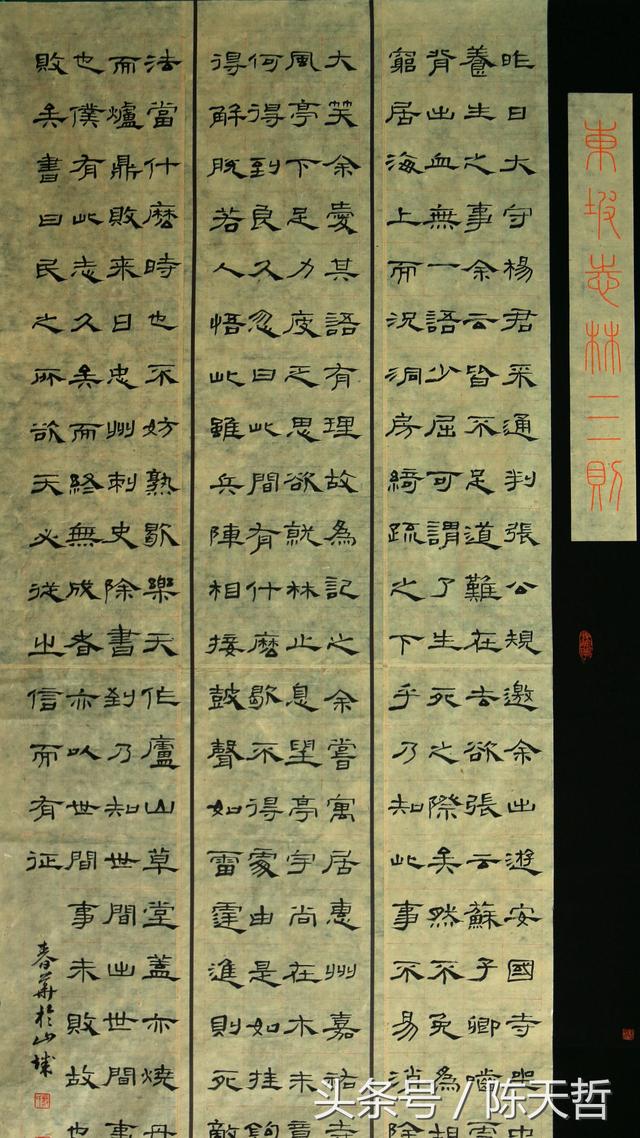 東坡志林三則
昨日大守楊君采通判張公規邀余出遊安國寺坐中
養生之事余云皆不足道難在去欲張云蘇子卿嚙雪
背出血無一語少屈可謂了生死之際矣然不免為
窮居海上而況洞房綺疏之下乎乃知此事不易消除
大笑余愛其語有理故為記之余嘗寓居惠州嘉祐寺
風亭下足力疲乏思欲就林止息望亭宇尚在木末意
何得到良久忽曰此間有什麼歇不得處由是如挂鉤
得解脫若人悟此雖兵陣相接鼓聲如雷霆進則死敵
法當什麼時也不妨熟歇樂天作廬山草堂蓋亦燒丹
而爐鼎敗來日忠州刺史除書到乃知世間出世間事
也僕有此志久矣而終無成者亦以世間事未敗故也
敗矣書曰民之所欲天必從之信而有征
春華於山城
头条号 / 陈天哲